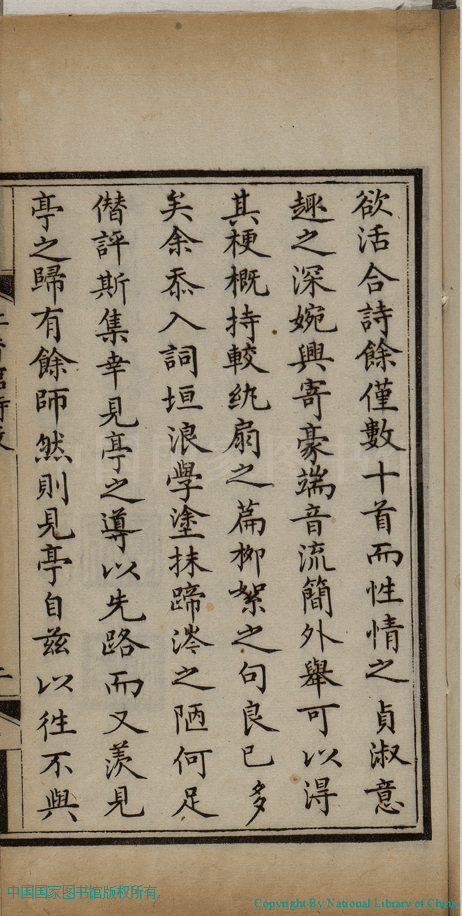 欲活合詩餘僅數十首而性情之貞淑意
趣之深婉興寄豪端音流簡外舉可以得
其梗概持較紈扇之篇柳絮之句良已多
矣余忝入詞垣浪學塗抹蹄涔之陋何足
僭評斯集幸見亭之導以先路而又羨見
亭之歸有餘師然則見亭自茲以往不與
中国国家图书馆版权所有
Copyright By National Library of China